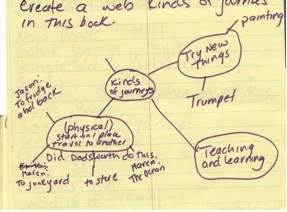 Create a web kinds of journies
in this book.
painting
Try New
things
Kinds
of journeys
Trumpet
Jason:
To fridge
and back
(physical)
Start in 1 place
travel to another
Did Dodsworth do this.
Maren:
To junkyard
to store
Maren:
The Ocean
Teaching
and learning